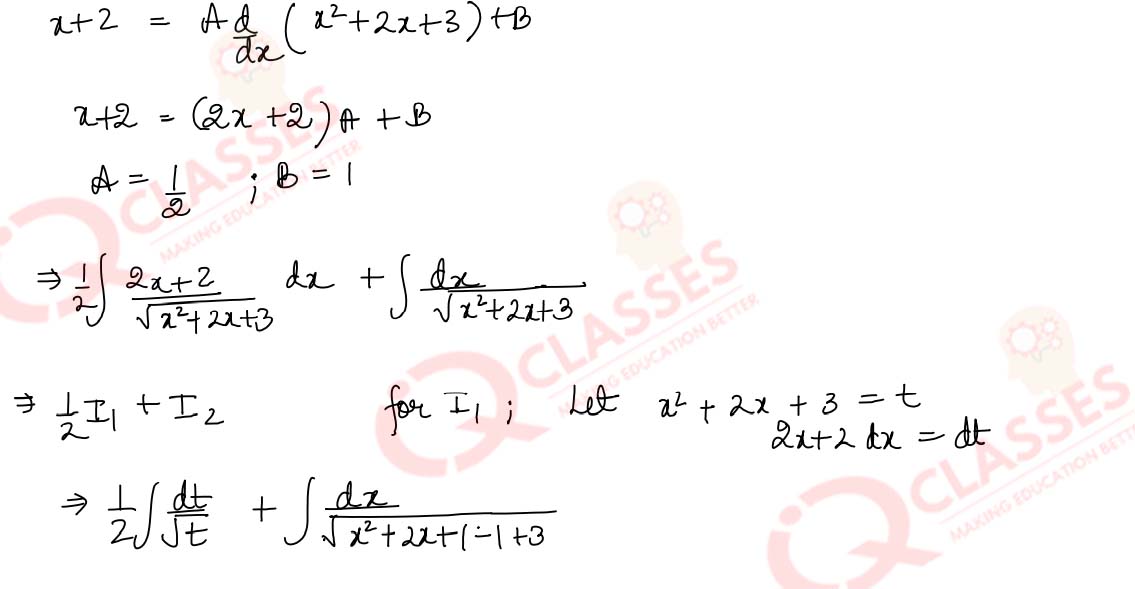 x+2 = A d/dx (x²+2x+3)+B
x+2 = (2x+2)A + B
A = 1/2 ; B = 1
⇒ 1/2 ∫ (2x+2)/√(x²+2x+3) dx + ∫ dx/√(x²+2x+3)
⇒ 1/2 I₁ + I₂ for I₁ ; Let x² + 2x + 3 = t
2x+2 dx = dt
⇒ 1/2 ∫ dt/√t + ∫ dx/√(x²+2x+1-1+3)
IQ CLASSES
MAKING EDUCATION BETTER
IQ CLASSES
MAKING EDUCATION BETTER
IQ CLASSES
MAKING EDUCATION BETTER